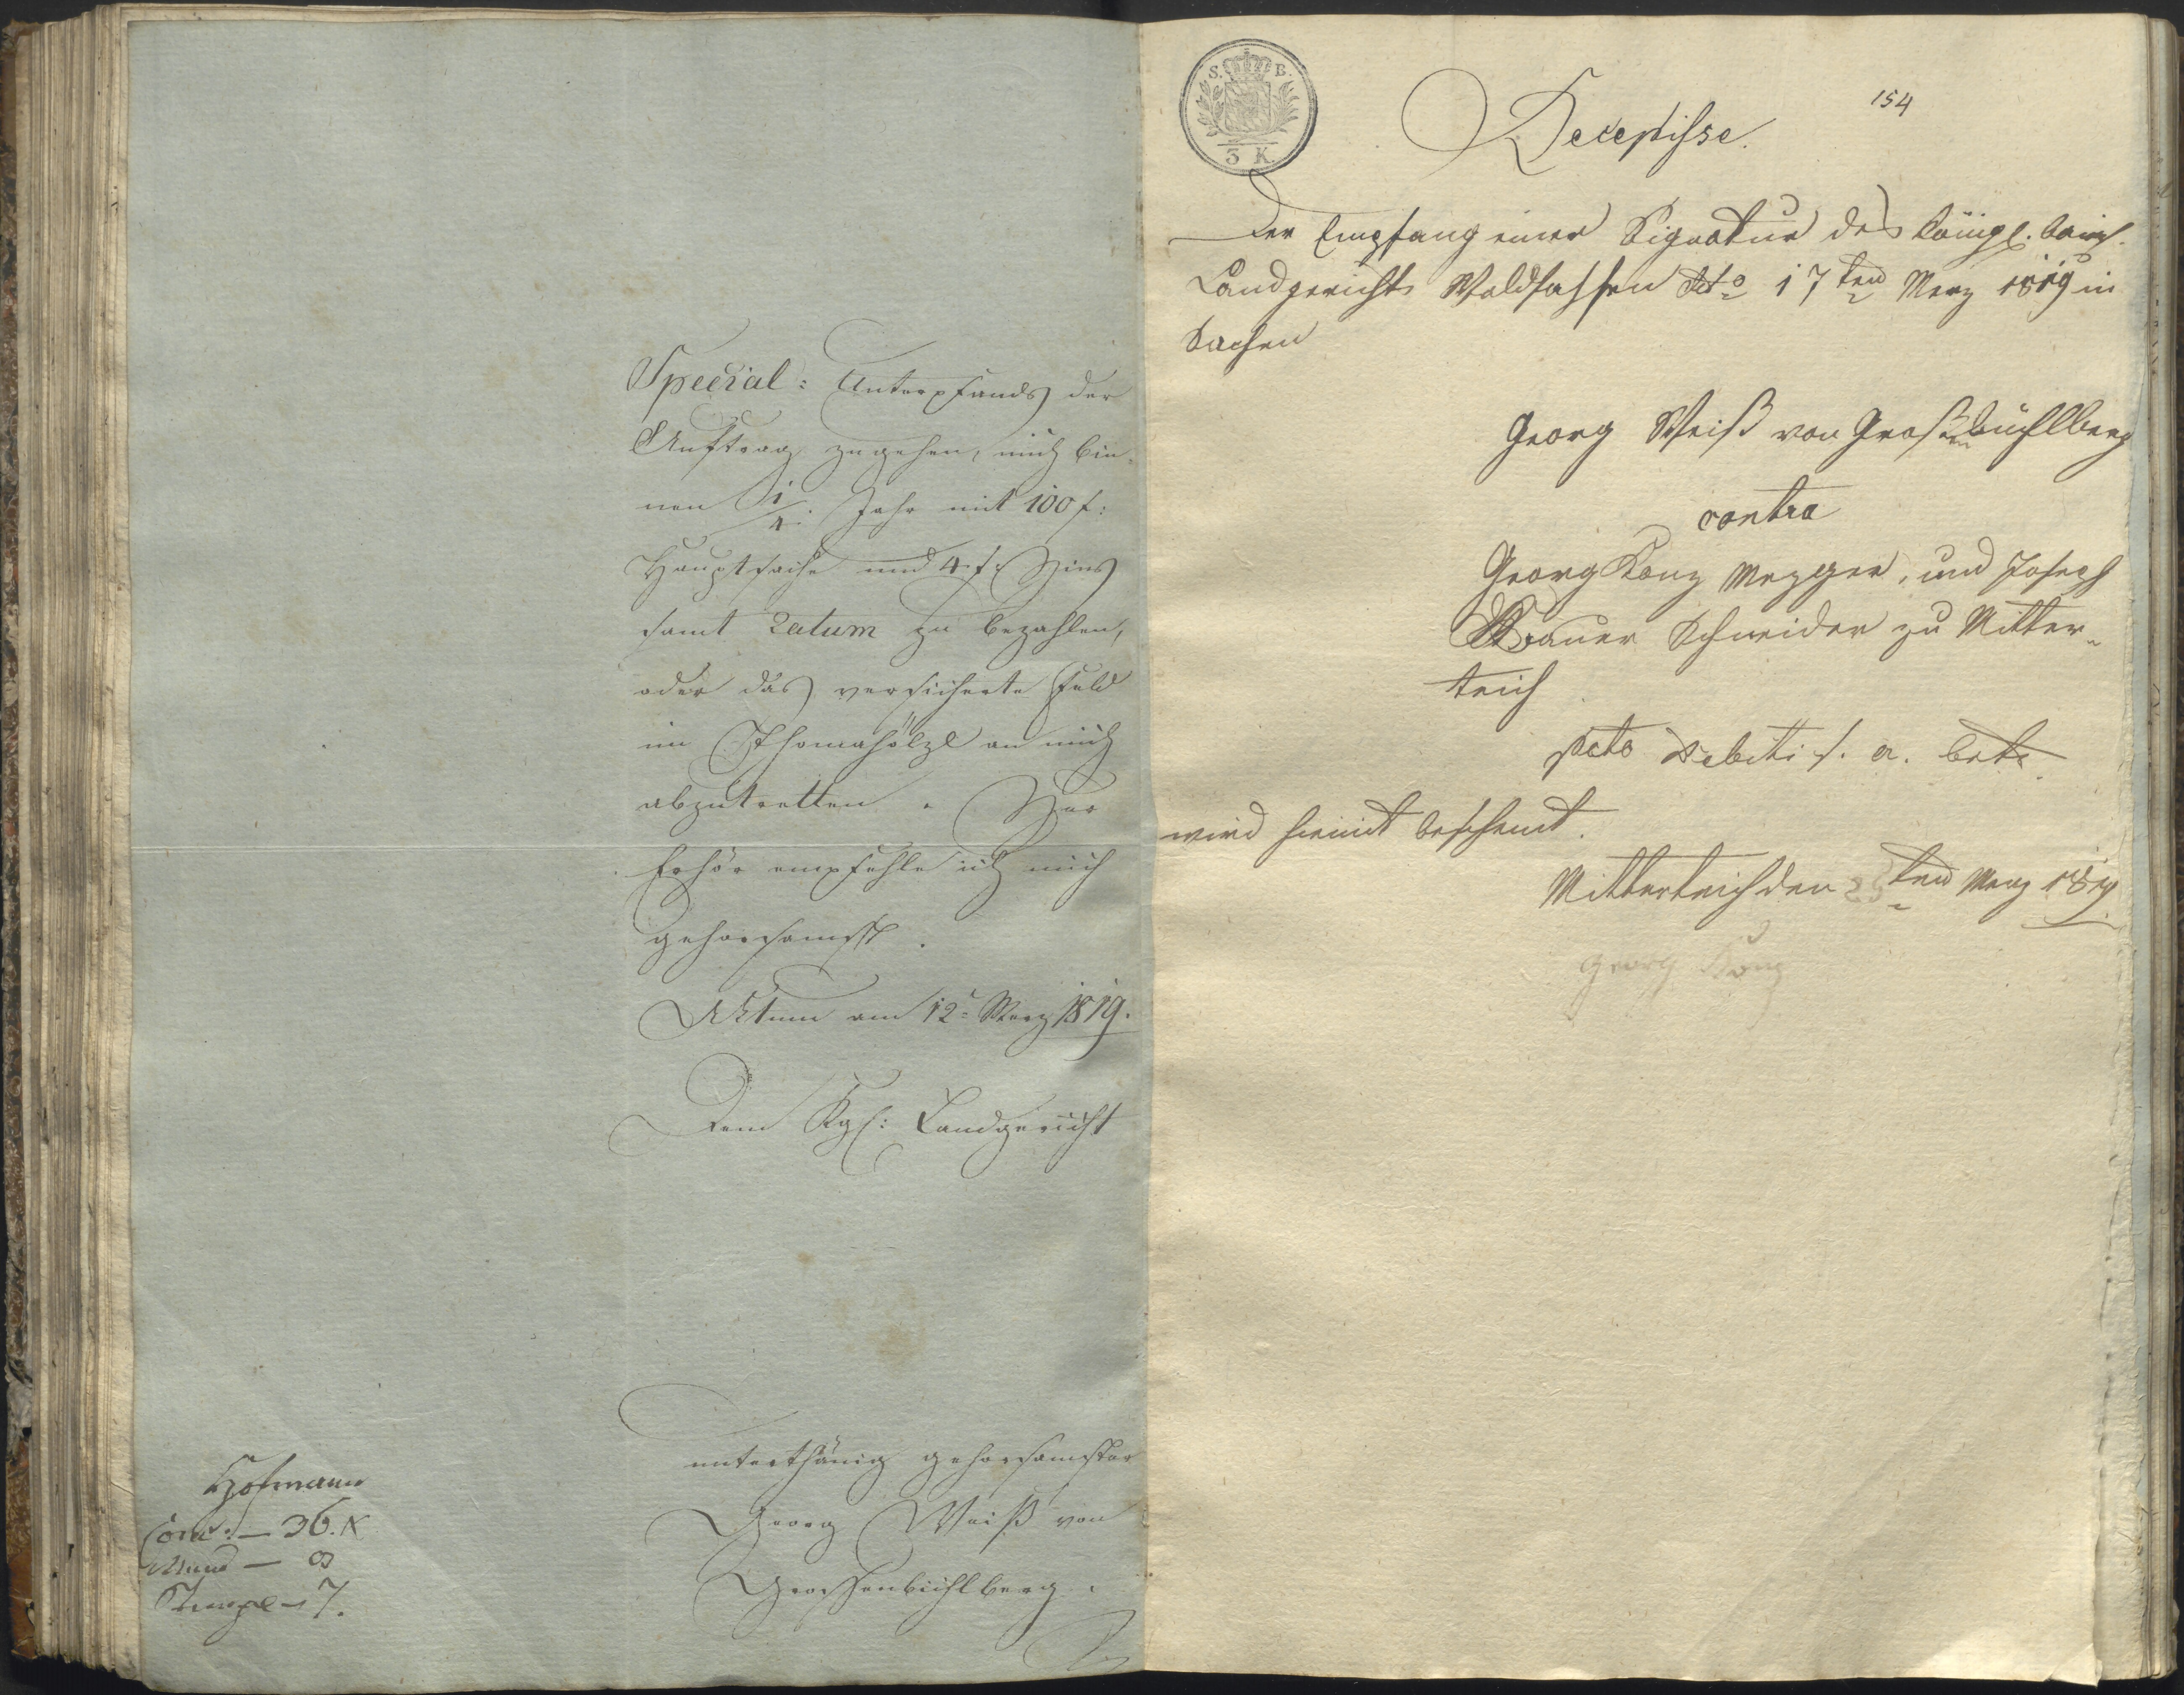 Special: Unterpfands der
Auftrag zugehen, mich bin-
nen 1/4. Jahr mit 100 f:
Hauptsache und 4 f: Zins
samt Latum zu bezahlen,
oder das versicherte Feld
im Thomahölzl an mich
abzutretten.
Erhör empfehle ich mich
gehorsamst.
Aktum am 12t Merz 1819.
Dem Kgl: Landgericht
unterthänig gehorsamster
Georg Weiß von
Grossenbüchlberg.
Hofmann
Conc: — 36. K
Mund — 8
Stempel — 7.
S. B.
3 K.
154
Recepisse.
Den Empfang einer Signatur des königl. baier.
Landgerichts Waldsassen dto 17ten Merz 1819 in
Sachen
Georg Weiß von Großenbüchlberg
contra
Georg Konz Mezger, und Joseph
Bauer Schneider zu Mitter-
teich
pcto Debiti s. a. betr.
wird hiemit bescheint.
Mitterteich den 23ten Merz 1819
Georg Konz